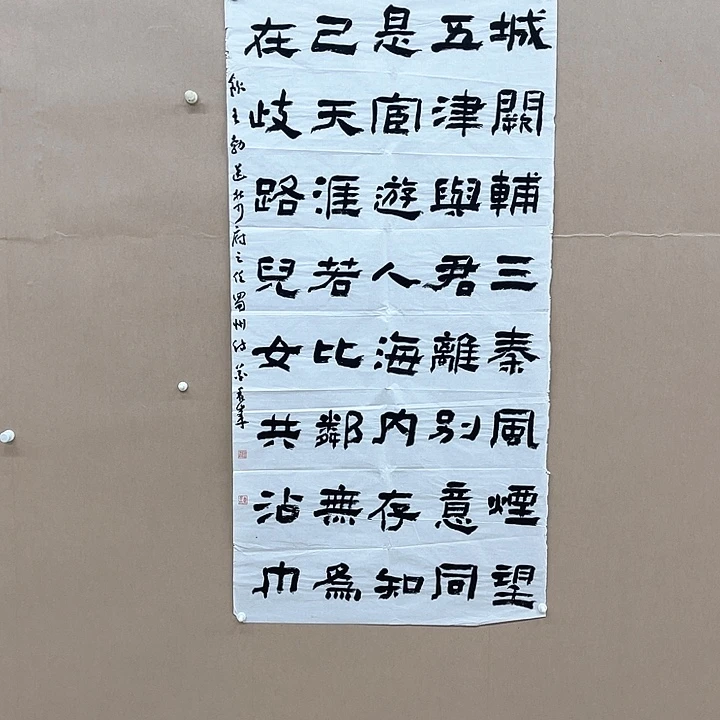 城闕輔三秦風煙望
五津與君離別意同
是宦遊人海內存知
己天涯若比鄰無爲
在歧路兒女共沾巾
錄王勃送杜少府之任蜀州詩